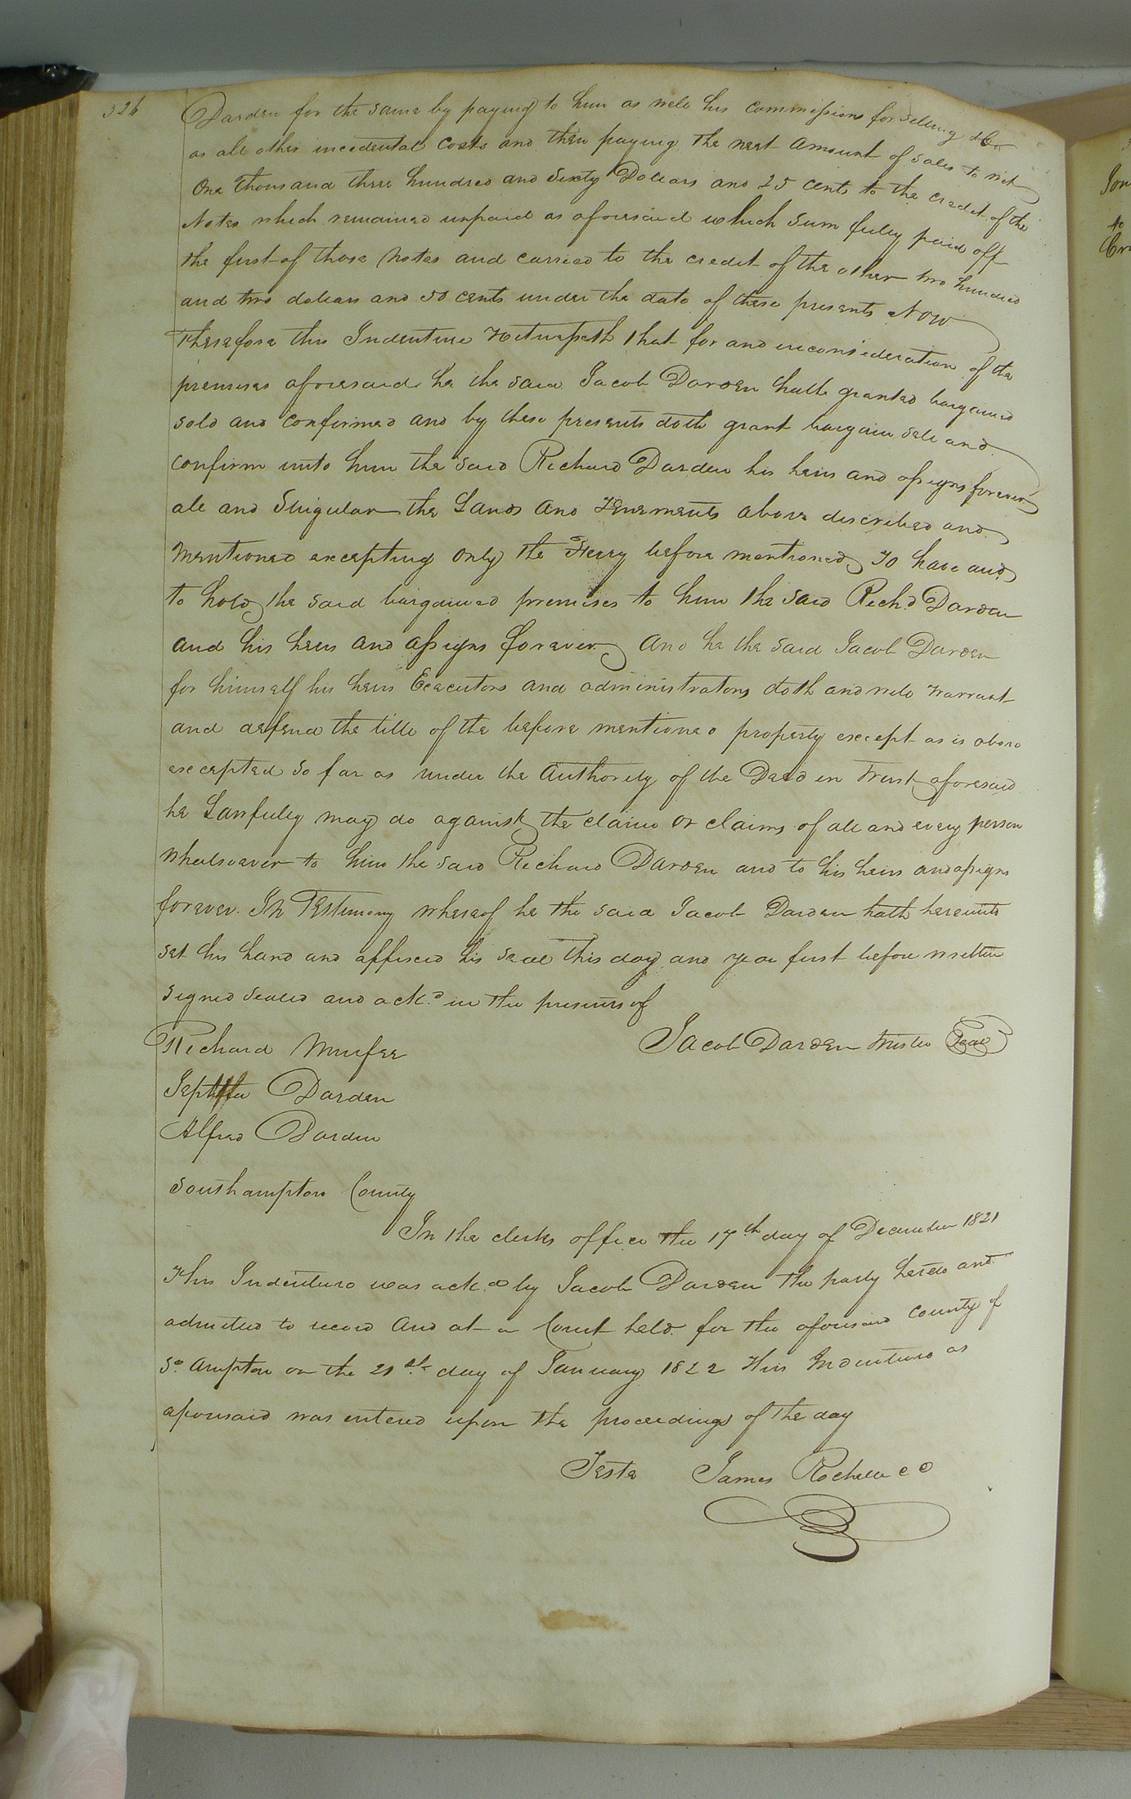 326
Darden for the same by paying to him as well his commissions for selling &c
as all other incidental costs and then paying the neat amount of sales to wit
One thousand three hundred and sixty Dollars and 25 cents to the credit of the
Notes which remained unpaid as aforesaid which sum fully paid off
the first of those Notes and carried to the credit of the other two hundred
and two dollars and 50 cents under the date of these presents Now
Therefore this Indenture Witnesseth that for and inconsideration of the
premises aforesaid he the said Jacob Darden hath granted bargained
sold and confirmed and by these presents doth grant bargain sell and
confirm unto him the said Richard Darden his heirs and assigns forever
all and Singular the Lands and Tenements above discribed and
mentioned excepting only the Ferry before mentioned, To have and
to hold the said bargained premises to him the said Rich'd Darden
and his heirs and assigns forever And he the said Jacob Darden
for himself his heirs Executors and administrators doth and will warrant
and defend the title of the before mentioned property except as is above
excepted so far as under the Authority of the Deed in Trust aforesaid
he Lawfully may do against the claim or claims of all and every person
whatsoever to him the said Richard Darden and to his heirs and assigns
forever. In Testimony whereof he the said Jacob Darden hath hereunto
set his hand and affixed his seal this day and year first before written
signed sealed and ackd in the presents of
Jacob Darden Trustee Seal
Richard
Darden
Alfred Darden
Southampton County
In the clerks office the 17th day of December 1821
This Indenture was ackd by Jacob Darden the party hereto and
admitted to record And at a Court held for the aforesaid County of
So Ampton on the 21st day of January 1822 This Indenture as
aforesaid was entered upon the proceedings of the day
Teste James Rochelle CC